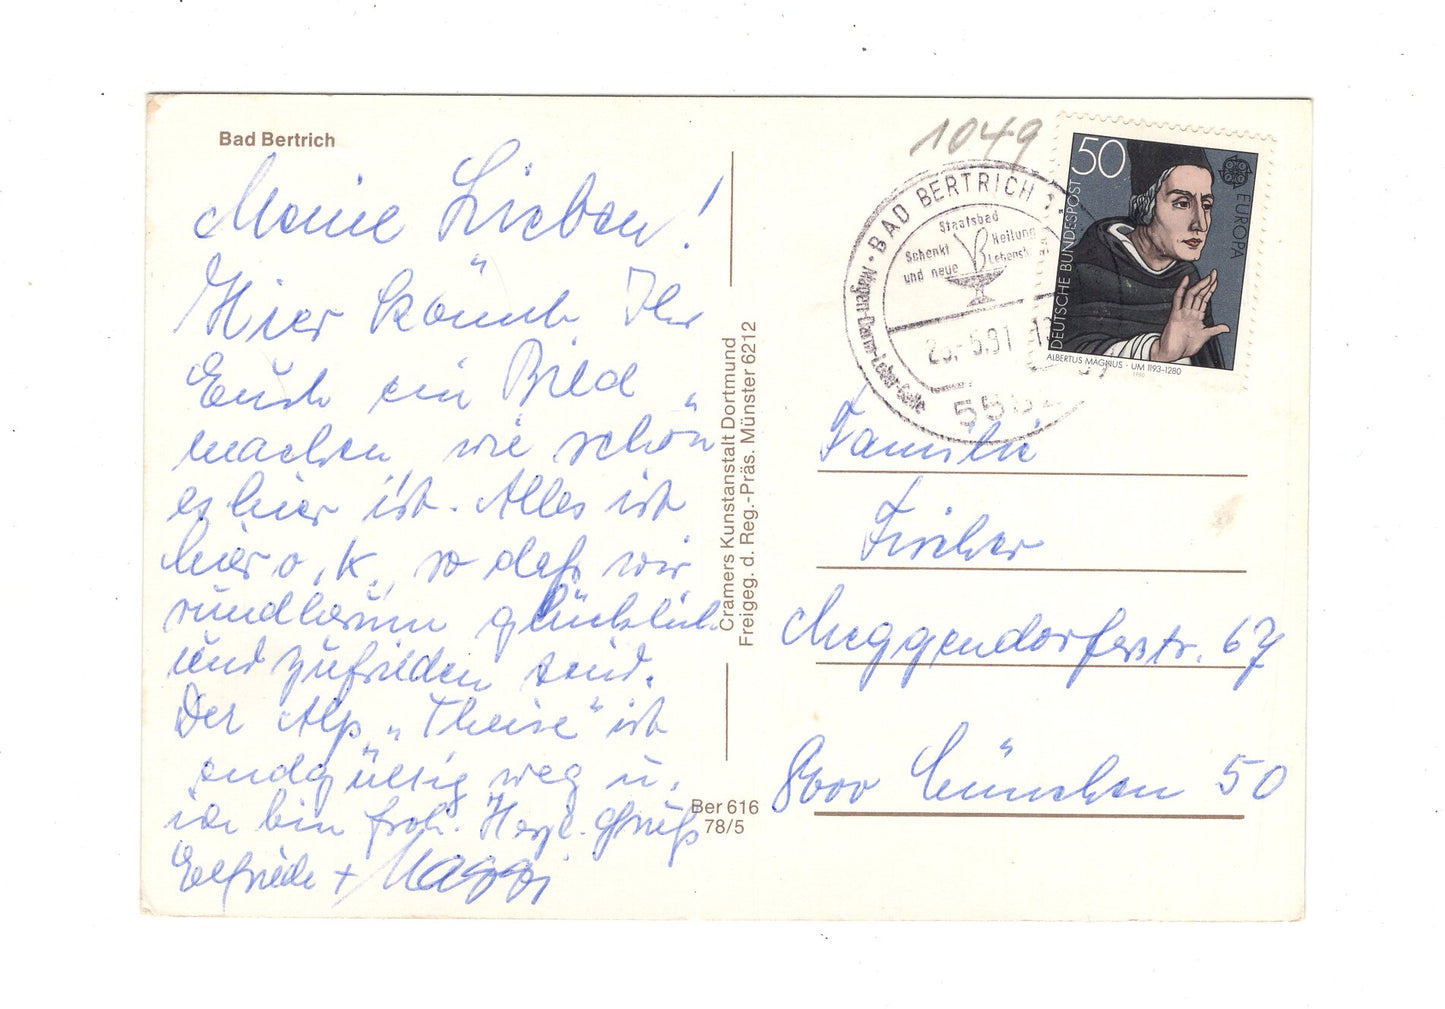 Bad Bertrich
Meine Lieben!
Hier könnt Ihr
Euch ein Bild
machen, wie schön
es hier ist. Alles ist
hier o.k., so daß wir
rundherum glücklich
und zufrieden sind.
Der Alp „Theise“ ist
endgültig weg u.
ich bin froh. Herzl. Gruß
Elfriede + Maggi
Cramers Kunstanstalt Dortmund
Freigeg. d. Reg.-Präs. Münster 6212
Ber 616
78/5
1049
BAD BERTRICH
Staatsbad
Schenkt Heilung
und neue
Magen-Darm-Leber-Galle
50
DEUTSCHE BUNDESPOST
EUROPA
ALBERTUS MAGNUS · UM 1193–1280
1980
Familie
Fischer
Meggendorferstr. 67
8000 München 50